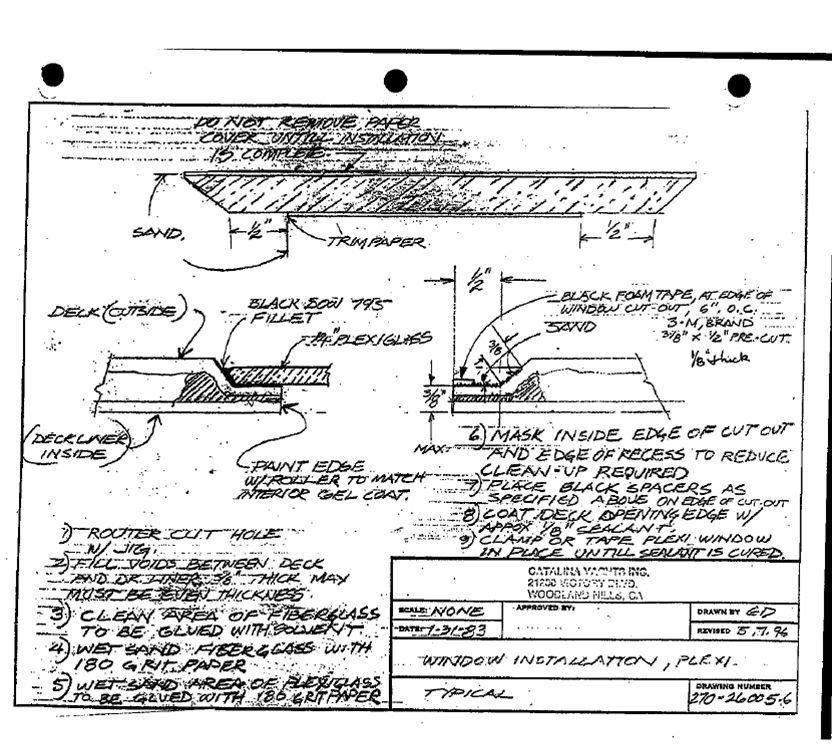 DO NOT REMOVE PAPER
COVER UNTILL INSTALLATION
IS COMPLETE
SAND.
1/2"
TRIM PAPER
1/2"
DECK (OUTSIDE)
BLACK DOW 795
FILLET
PLEXIGLASS
(DECK LINER
INSIDE)
PAINT EDGE
W/ROLLER TO MATCH
INTERIOR GEL COAT.
1/2"
BLACK FOAM TAPE, AT EDGE OF
WINDOW CUT-OUT, 6" O.C.
SAND
3-M, BRAND
x 1/2" PRE-CUT.
1/8" thick
3/8
3/8"
MAX.
1) ROUTER CUT HOLE
W/ JIG.
2) FILL VOIDS BETWEEN DECK
AND DK LINER 3/8" THICK MAX
MUST BE EVEN THICKNESS
3) CLEAN AREA OF FIBERGLASS
TO BE GLUED WITH SOLVEKIT
4) WET SAND FIBERGLASS WITH
180 GRIT PAPER
5) WET SAND AREA OF PLEXIGLASS
TO BE GLUED WITH 180 GRIT PAPER
6) MASK INSIDE EDGE OF CUT OUT
AND EDGE OF RECESS TO REDUCE
CLEAN-UP REQUIRED
7) PLACE BLACK SPACERS AS
SPECIFIED ABOVE ON EDGE OF CUT-OUT
8) COAT DECK OPENING EDGE W/
APPOX 1/8" SEALANT.
9) CLAMP OR TAPE PLEXI WINDOW
IN PLACE UNTILL SEALANT IS CURED.
CATALINA YACHTS INC.
21200 VICTORY BLVD.
WOODLAND HILLS, CA
SCALE: NONE
APPROVED BY:
DRAWN BY GD
DATE: 1-31-83
REVISED 5.7.96
WINDOW INSTALLATION, PLEXI.
TYPICAL
DRAWING NUMBER
270-26005-6